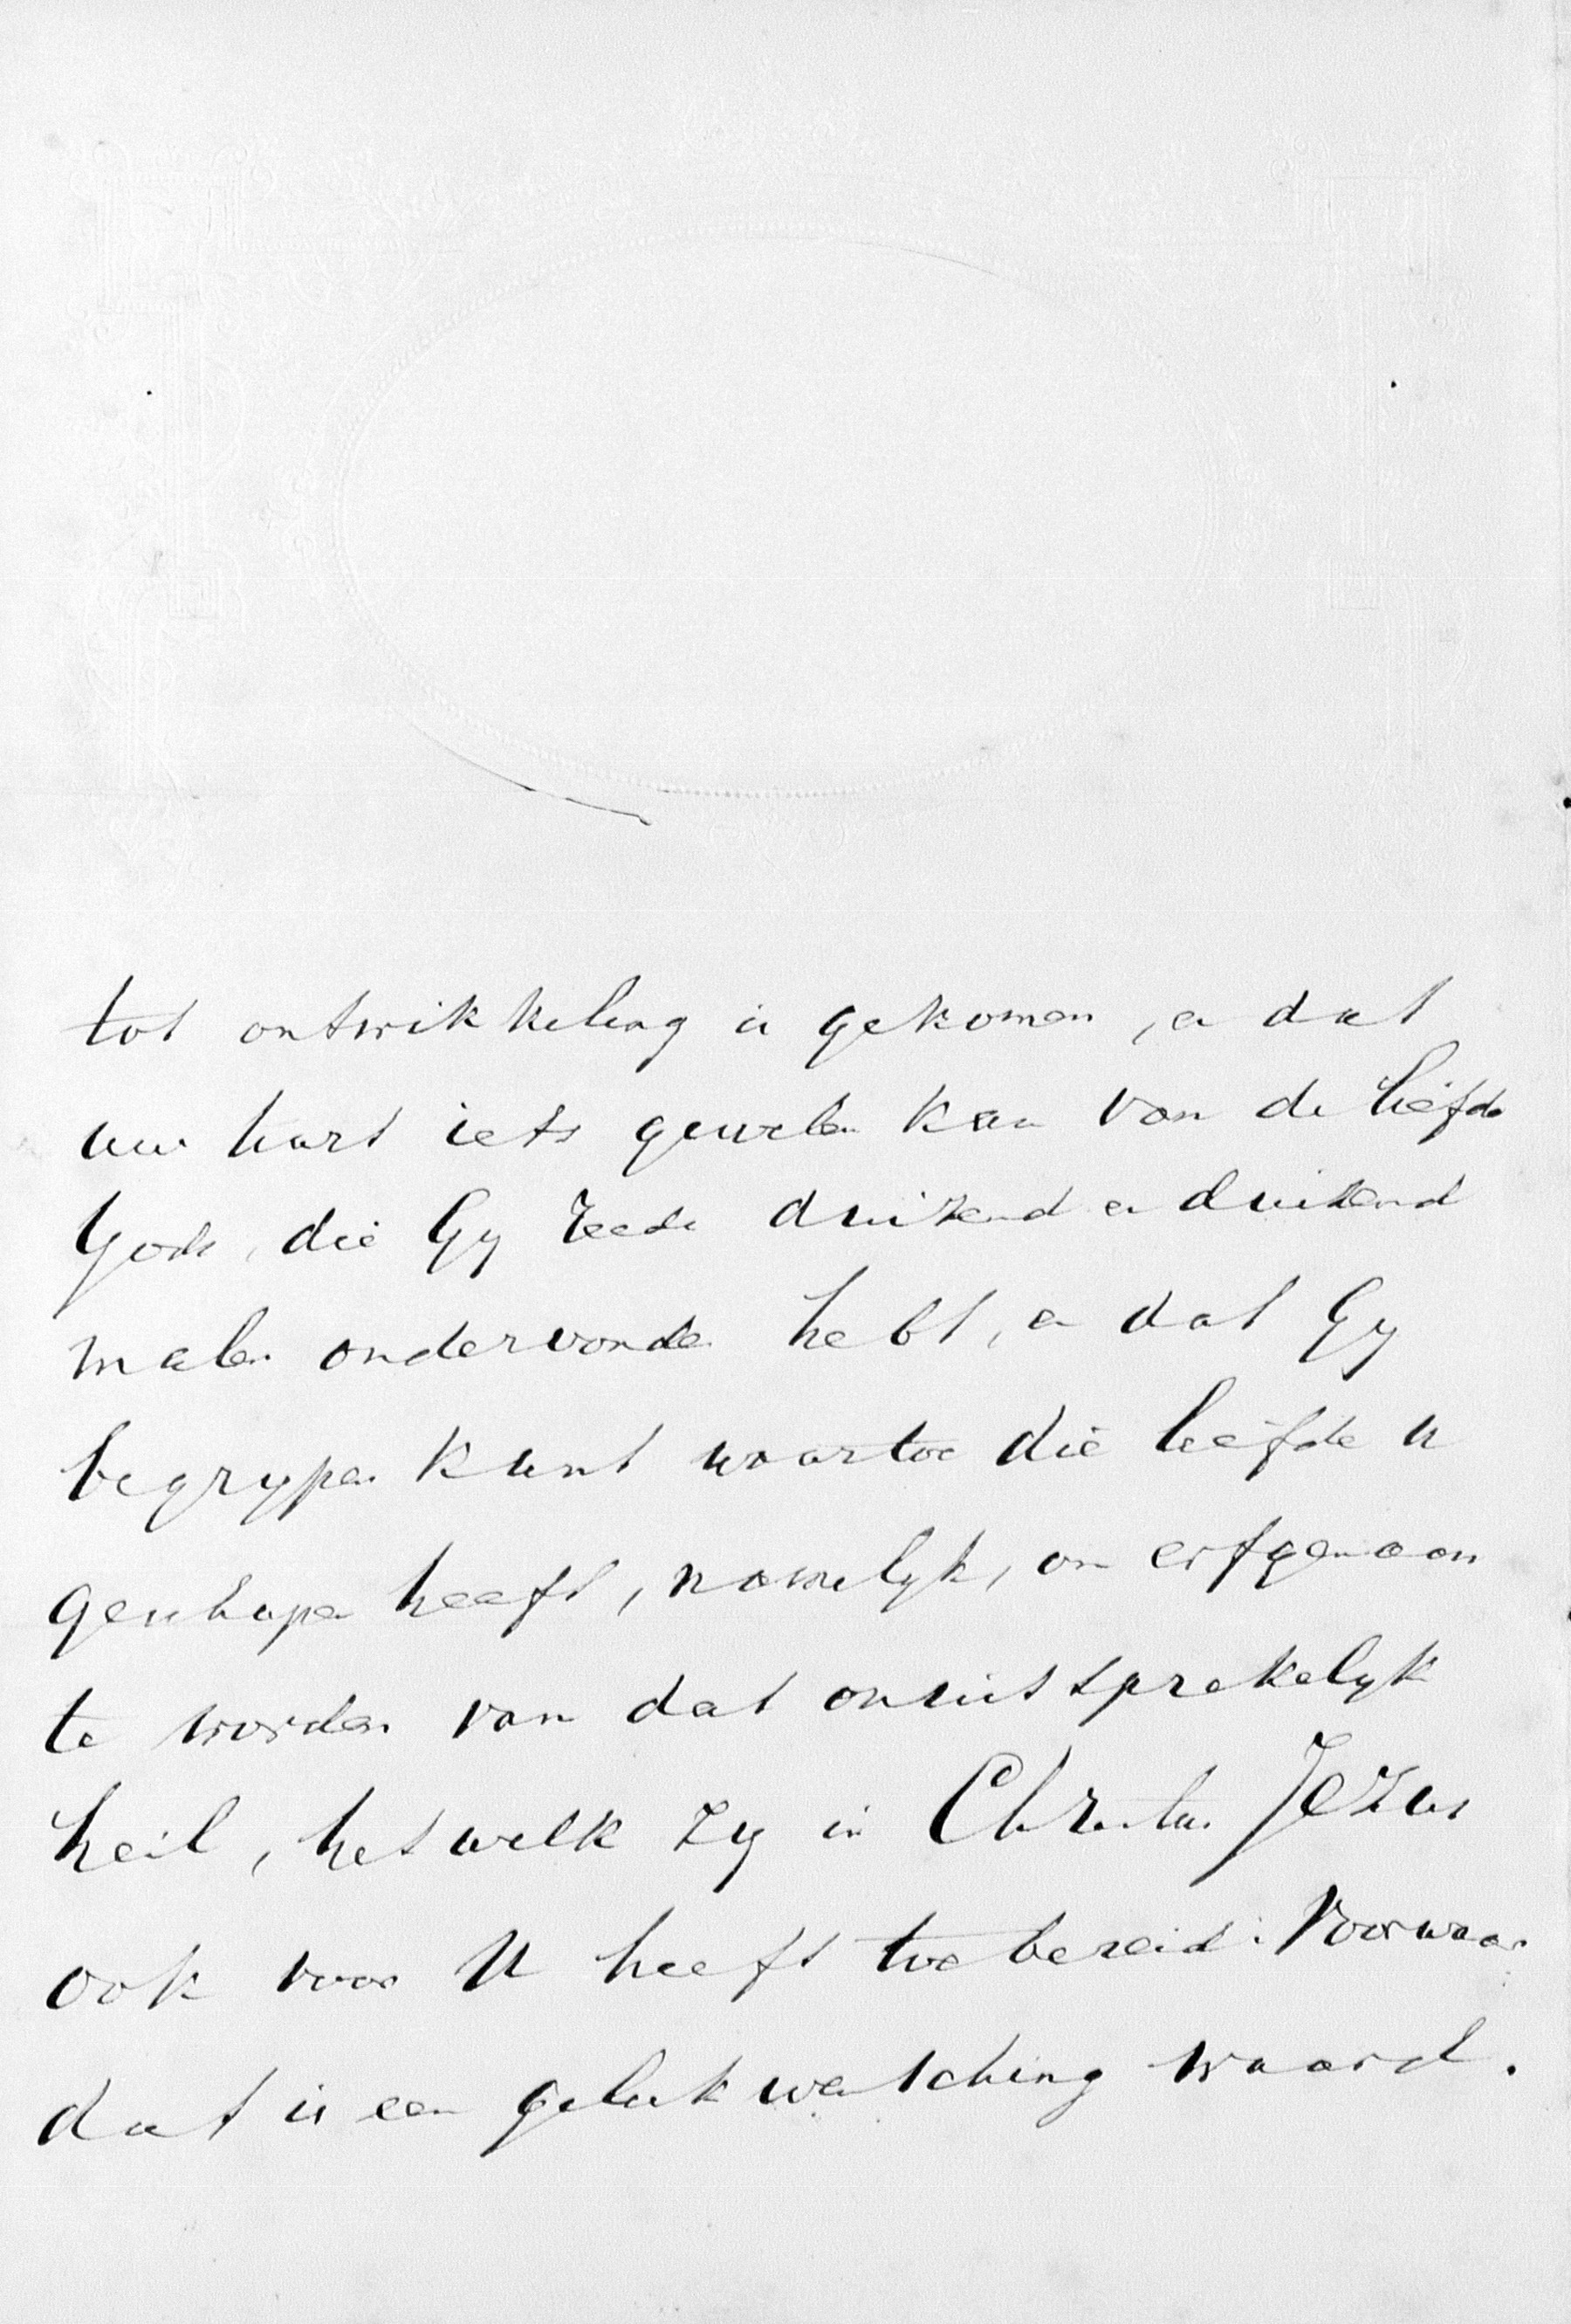 tot ontwikkeling is gekomen, en dat
uw hart iets gevoelen kan van de liefde
Gods, die Gy reeds duizend en duizend
malen ondervonden hebt, en dat Gy
begrypen kunt waartoe die liefde u
geschapen heeft, namelyk, om erfgenaam
te worden van dat onuitsprekelyk
heil, hetwelk zy in Christus Jezus
ook voor U heeft toebereid. Voorwaar
dat is een gelukwensching waard.